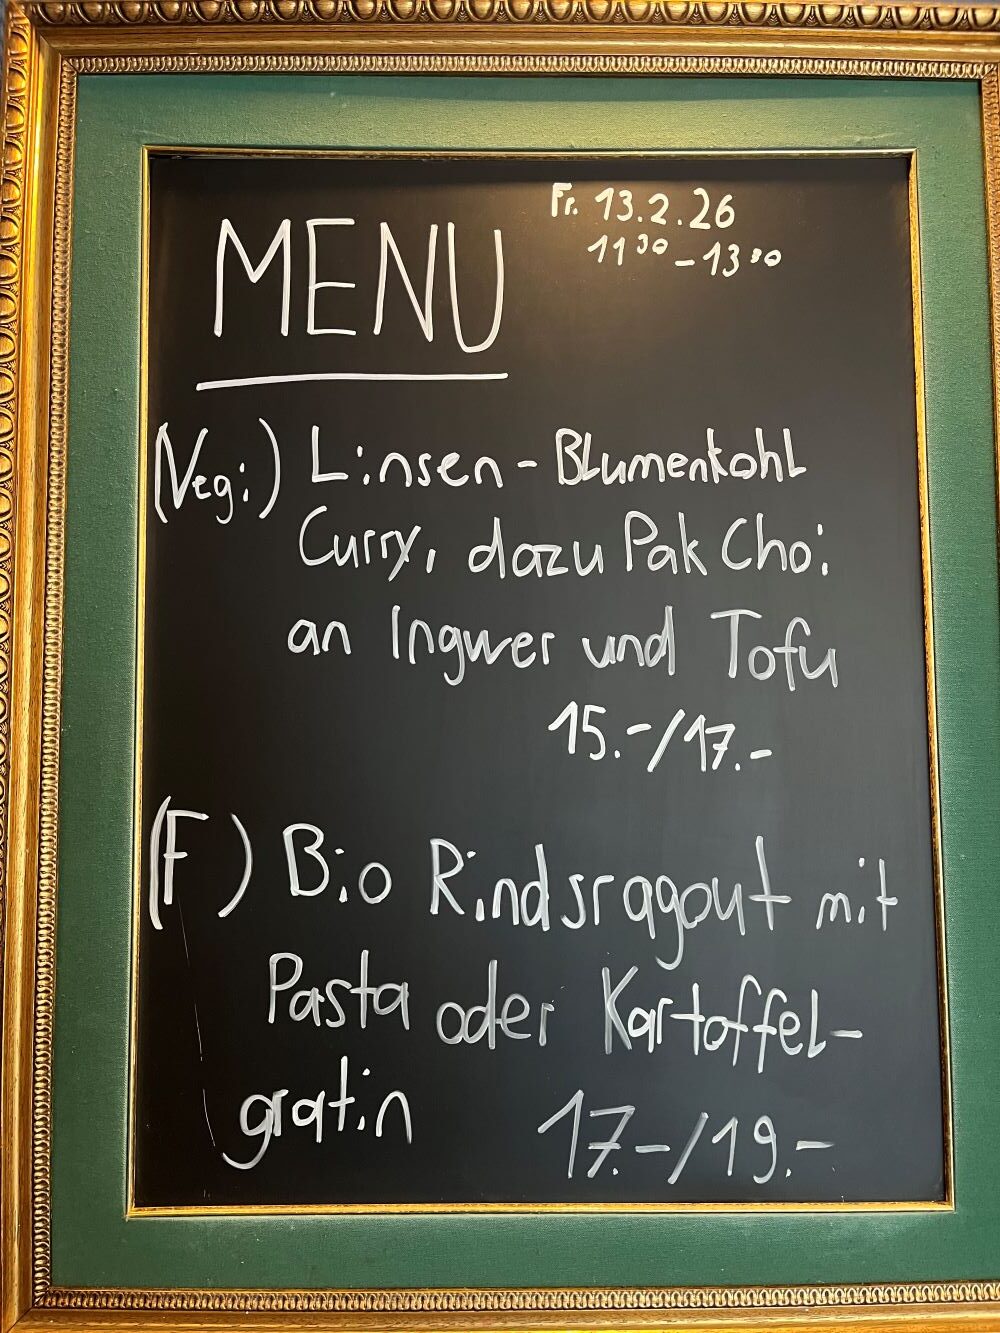 MENU
Fr. 13.2.26
11³⁰-13³⁰
(Vegi) Linsen-Blumenkohl
Curry, dazu Pak Choi
an Ingwer und Tofu
15.-/17.-
(F) Bio Rindsragout mit
Pasta oder Kartoffel-
gratin 17.-/19.-